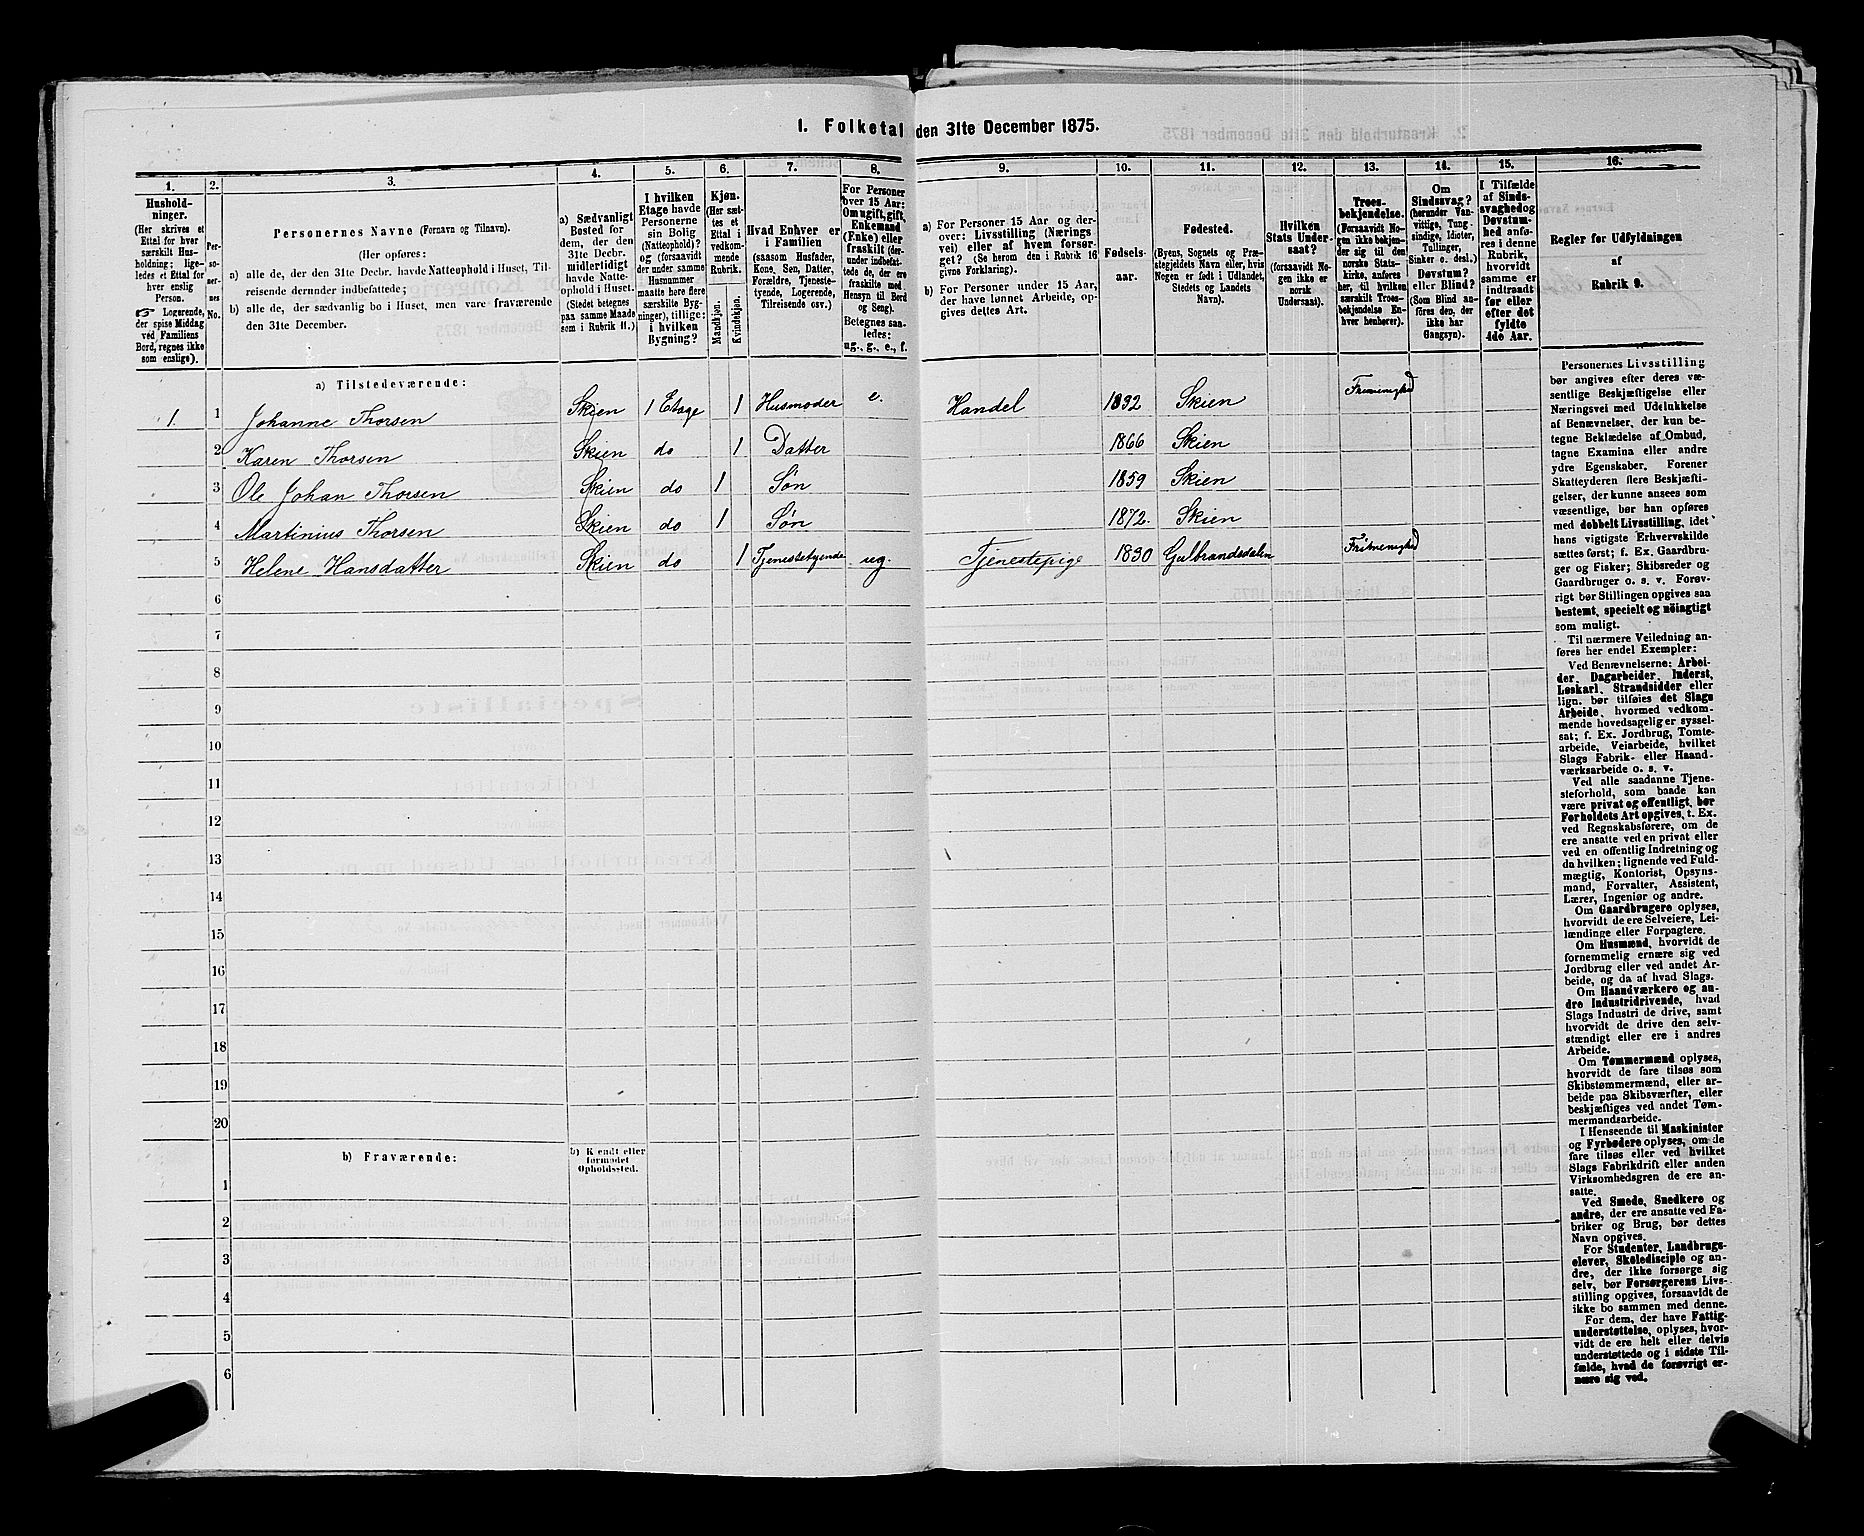 1. Folketal den 31te December 1875.
1.
Hushold-
ninger.
(Her skrives et
Ettal for hver
særskilt Hus-
holdning; lige-
ledes et Ettal for
hver enslig
Person.
☞ Logerende,
der spise Middag
ved Familiens
Bord, regnes ikke
som enslige).
2.
Per-
so-
ner-
nes
No.
3.
Personernes Navne (Fornavn og Tilnavn).
(Her opføres:
a) alle de, der den 31te Decbr. havde Natteophold i Huset, Til-
reisende derunder indbefattede;
b) alle de, der sædvanlig bo i Huset, men vare fraværende
den 31te December.
4.
a) Sædvanligt
Bosted for
dem, der den
31te Decbr.
midlertidigt
havde Natte-
ophold i Huset.
(Stedet betegnes
paa samme Maade
som i Rubrik 11.)
5.
I hvilken
Etage havde
Personerne
sin Bolig
(Natteophold)?
og (forsaavidt
der under samme
Husnummer
maatte høre flere
særskilte Byg-
ninger), tillige:
i hvilken
Bygning?
6.
Kjøn.
(Her sæt-
tes et
Ettal i
vedkom-
mende
Rubrik.
Mandkjøn.
Kvindekjøn.
7.
Hvad Enhver er
i Familien
(saasom Husfader,
Kone, Søn, Datter,
Forældre, Tjeneste-
tyende, Logerende,
Tilreisende osv.)
8.
For Personer
over 15 Aar:
Om ugift, gift,
Enkemand
(Enke) eller
fraskilt (der-
under indbefat-
tede de, der ere
fraskilte med
Hensyn til Bord
og Seng).
Betegnes saa-
ledes:
ug., g., e., f.
9.
a) For Personer 15 Aar og der-
over: Livsstilling (Nærings
vei) eller af hvem forsør-
get? (Se herom den i Rubrik 16
givne Forklaring).
b) For Personer under 15 Aar,
der have lønnet Arbeide, op-
gives dettes Art.
10.
Fødsels-
aar.
11.
Fødested.
(Byens, Sognets og Præ-
stegjeldets Navn eller, hvis
Nogen er født i Udlandet,
Stedets og Landets
Navn).
12.
Hvilken
Stats Under-
saat?
(forsaavidt No-
gen ikke er
norsk
Undersaat).
13.
Troes-
bekjendelse.
(Forsaavidt No-
gen ikke bekjen-
der sig til den
norske Stats-
kirke, anføres
her, til hvilken
særskilt Troes-
bekjendelse En-
hver henhører).
14.
Om
Sindssvag?
(herunder Van-
vittige, Tung-
sindige, Idioter,
Tullinger,
Sinker o. desl.)
Døvstum?
eller Blind?
(Som Blind an-
føres den, der
ikke har
Gangsyn).
15.
I Tilfælde
af Sinds-
svaghed og
Døvstum-
hed anfø-
res i denne
Rubrik,
hvorvidt
samme er
indtraadt
før eller
efter det
fyldte
4de Aar.
16.
Regler for Udfyldningen
af
Rubrik 9.
a) Tilstedeværende:
1. 1 Johanne Thorsen Skien 1 Etage 1 Husmoder e. Handel 1832 Skien Frimenighed
2 Karen Thorsen Skien do 1 Datter 1866 Skien
3 Ole Johan Thorsen Skien do 1 Søn 1859 Skien
4 Martinius Thorsen Skien do 1 Søn 1872. Skien
5 Helene Hansdatter Skien do 1 Tjenestetyende ug. Tjenestepige 1830 Gulbrandsdalen Frimenighed
6
7
8
9
10
11
12
13
14
15
16
17
18
19
20
b) Fraværende:
b) Kjendt eller
formodet
Opholdssted.
1
2
3
4
5
6
Personernes Livsstilling
bør angives efter deres væ-
sentlige Beskjæftigelse eller
Næringsvei med Udelukkelse
af Benævnelser, der kun be-
tegne Beklædelse af Ombud,
tagne Examina eller andre
ydre Egenskaber. Forener
Skatteyderen flere Beskjæfti-
gelser, der kunne ansees som
væsentlige, bør han opføres
med dobbelt Livsstilling, idet
hans vigtigste Erhvervskilde
sættes først; f. Ex. Gaardbru-
ger og Fisker; Skibsreder og
Gaardbruger o. s. v. Forøv-
rigt bør Stillingen opgives saa
bestemt, specielt og nöiagtigt
som muligt.
Til nærmere Veiledning an-
føres her endel Exempler:
Ved Benævnelserne: Arbei-
der, Dagarbeider, Inderst,
Løskarl, Strandsidder eller
lign. bør tilføies det Slags
Arbeide, hvormed vedkom-
mende hovedsagelig er syssel-
sat; f. Ex. Jordbrug, Tomte-
arbeide, Veiarbeide, hvilket
Slags Fabrik- eller Haand-
værksarbeide o. s. v.
Ved alle saadanne Tjene-
steforhold, som baade kan
være privat og offentligt, bør
Forholdets Art opgives, t. Ex.
ved Regnskabsførere, om de
ere ansatte ved en privat eller
ved en offentlig Indretning og
da hvilken; lignende ved Fuld-
mægtig, Kontorist, Opsyns-
mand, Forvalter, Assistent,
Lærer, Ingeniør og andre.
Om Gaardbrugere oplyses,
hvorvidt de ere Selveiere, Lei-
lændinge eller Forpagtere.
Om Husmænd, hvorvidt de
fornemmelig ernære sig ved
Jordbrug eller ved andet Ar-
beide, og da af hvad Slags.
Om Haandværkere og an-
dre Industridrivende, hvad
Slags Industri de drive, samt
hvorvidt de drive den selv-
stændigt eller ere i andres
Arbeide.
Om Tømmermænd oplyses,
hvorvidt de fare tilsøs som
Skibstømmermænd, eller ar-
beide paa Skibsværfter, eller
beskjæftiges ved andet Tøm-
mermandsarbeide.
I Henseende til Maskinister
og Fyrbødere oplyses, om de
fare tilsøs eller ved hvilket
Slags Fabrikdrift eller anden
Virksomhedsgren de ere an-
satte.
Ved Smede, Snedkere og
andre, der ere ansatte ved Fa-
briker og Brug, bør dettes
Navn opgives.
For Studenter, Landbrugs-
elever, Skoledisciple og an-
dre, der ikke forsørge sig
selv, bør Forsørgerens Livs-
stilling opgives, forsaavidt de
ikke bo sammen med denne.
For dem, der have Fattig-
understøttelse, oplyses, hvor-
vidt de ere helt eller delvis
understøttede og i sidste Til-
fælde, hvad de forøvrigt er-
nære sig ved.